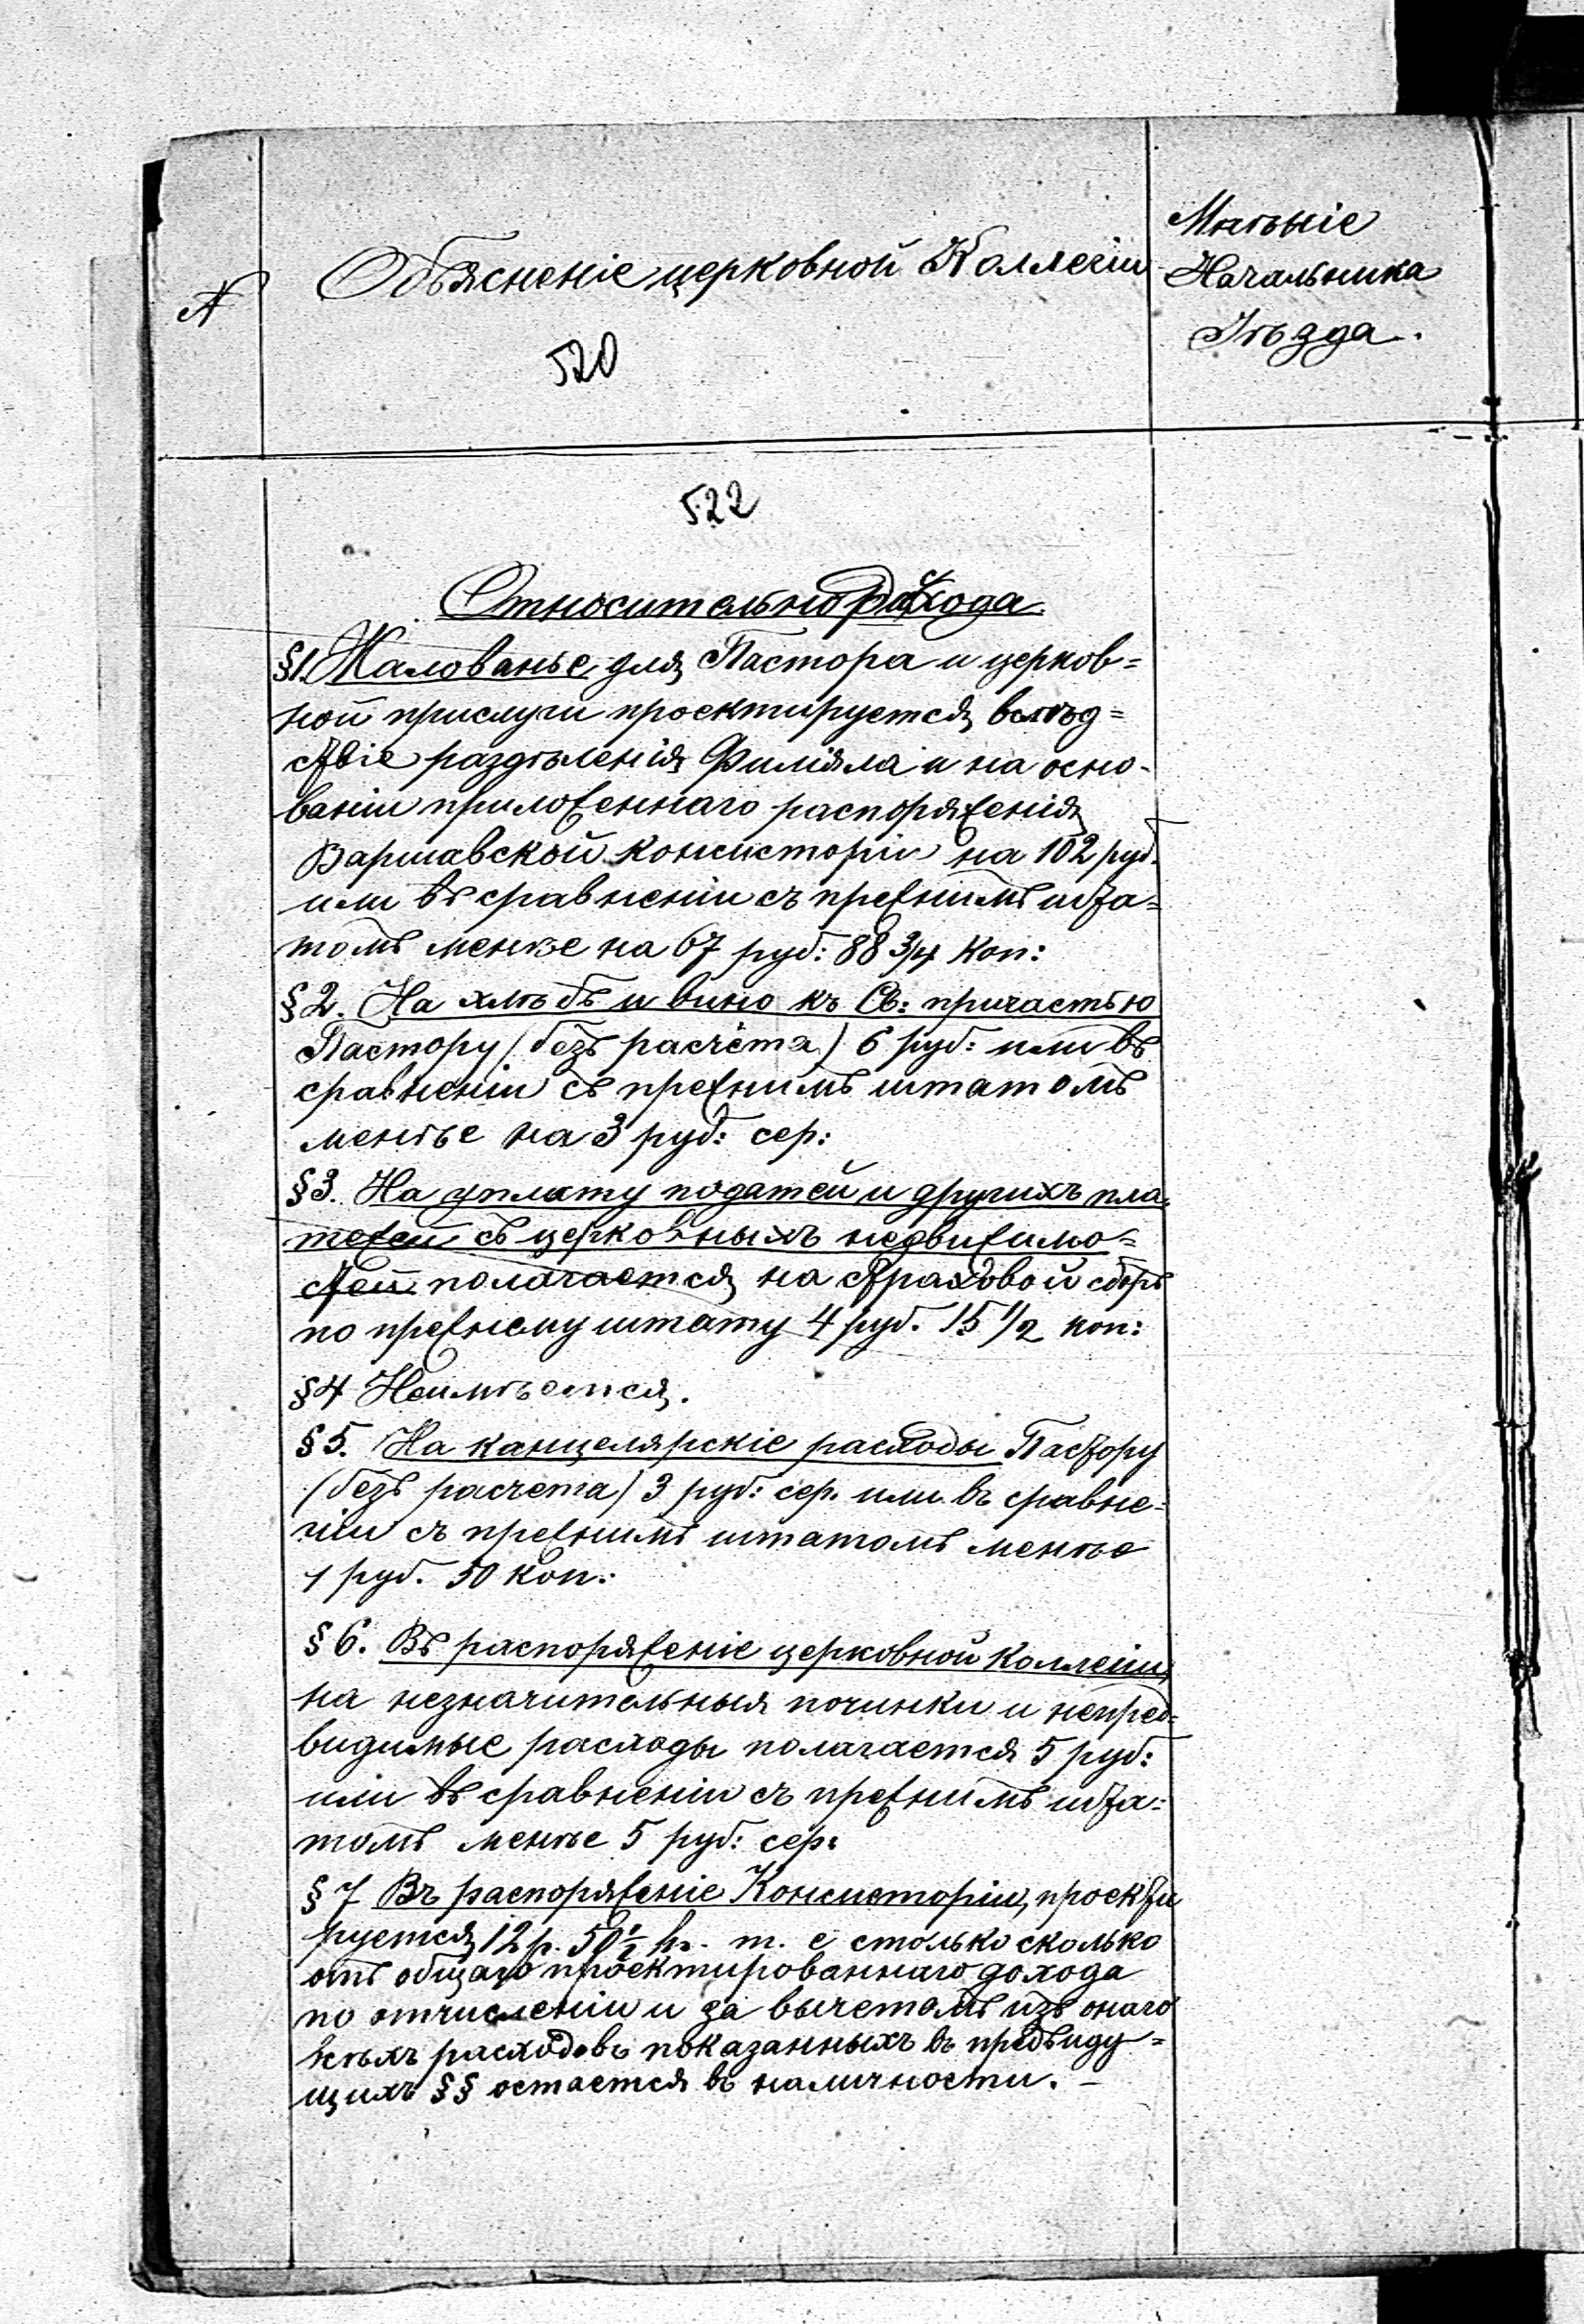 №
Объясненіе церковной Коллегіи
Мнѣніе
Начальника
Уѣзда.
520
522
Относительно расхода
§1. Жалованье для Пастора и церков=
ной прислуги проектируется вслѣд=
ствіе раздѣленія Филіяла и на осно-
ваніи приложеннаго распоряженія
Варшавской консисторіи на 102 руб.
или въ сравненіи съ прежнимъ шта=
томъ менѣе на 67 руб: 88 3/4 Коп:
§ 2. На хлѣбъ и вино къ Св: причастью
Пастору (безъ расчёта) 6 руб: или въ
сравненіи съ прежнимъ штатомъ
менѣе на 3 руб: сер:
§3. На уплату податей и другихъ пла-
тежей съ церковныхъ недвижимо=
стей полагается на страховой сборъ
по прежнему штату 4 руб. 15 1/2 коп:
§4 Неимѣется.
§ 5. На канцелярскіе расходы Пастору
(безъ расчета) 3 руб: сер. или въ сравне=
ніи съ прежнимъ штатомъ менѣе
1 руб. 50 коп.:
§ 6. Въ распоряженіе церковной Коллегіи,
на незначительныя починки и непред=
видимые расходы полагается 5 руб:
или въ сравненіи съ прежнимъ шта=
томъ менѣе 5 руб: сер:
§ 7 Въ распоряженіе Консисторіи, проекти
руется 12 р. 50 1/2 к. т. е столько сколько
отъ общаго проектированнаго дохода
по отчисленіи и за вычетомъ изъ онаго
всѣхъ расходовъ показанныхъ въ предъиду=
щихъ §§ остается въ наличности. –